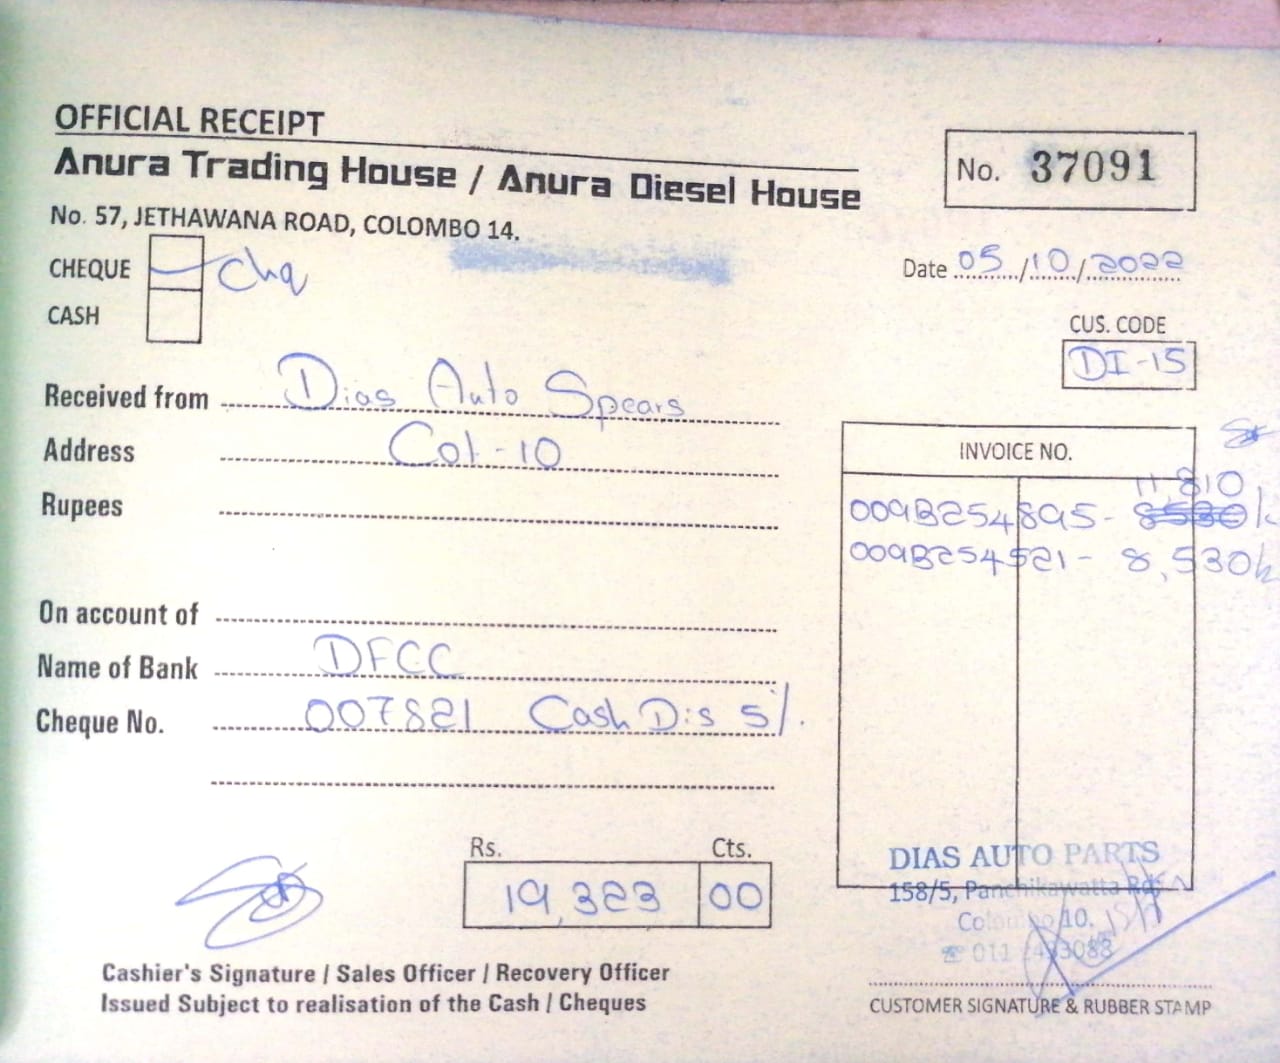 OFFICIAL RECEIPT
Anura Trading House / Anura Diesel House
No. 57, JETHAWANA ROAD, COLOMBO 14.
No. 37091
CHEQUE Chq
CASH
Date 05/10/2022
CUS. CODE
DI-15
Received from Dias Auto Spears
Address Col-10
Rupees
INVOICE NO.
11,810
009B254895- 8530/=
009B254521- 8,530/=
On account of
Name of Bank DFCC
Cheque No. 007821 Cash Dis 5%.
Rs. Cts.
19,323 00
DIAS AUTO PARTS
158/5, Panchikawatta Rd,
Colombo 10.
☎ 011 2433088
Cashier's Signature / Sales Officer / Recovery Officer
Issued Subject to realisation of the Cash / Cheques
CUSTOMER SIGNATURE & RUBBER STAMP